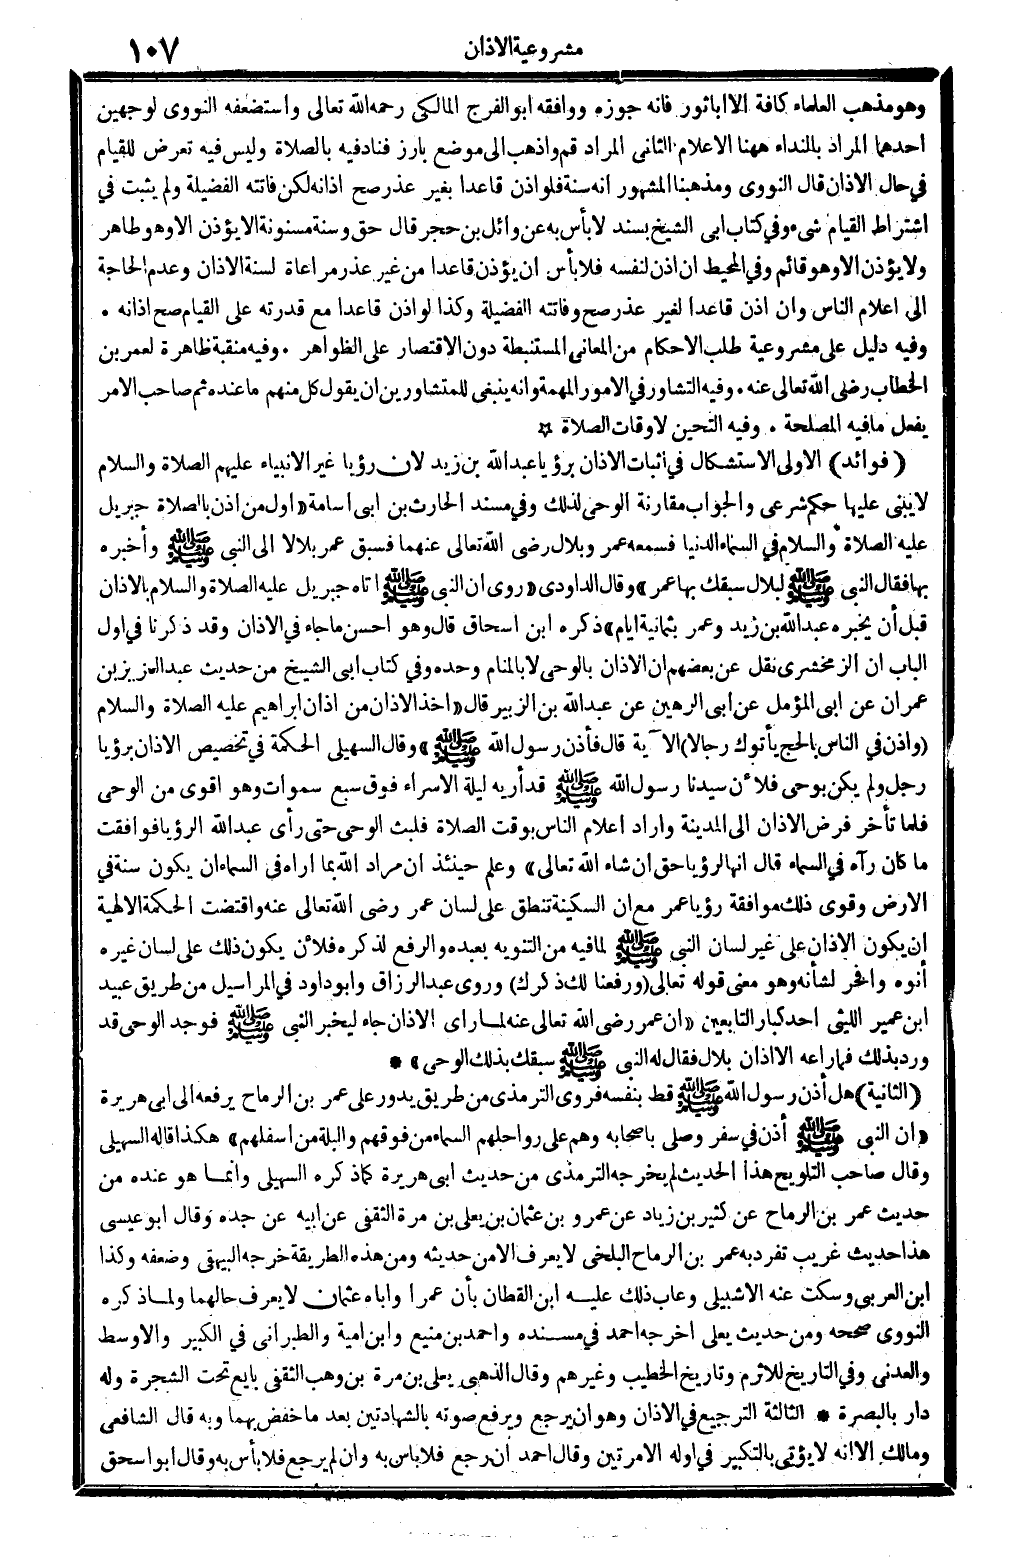 مشروعية الاذان ١٠٧
وهو مذهب العلماء كافة الا اباثور فانه جوزه ووافقه ابو الفرج المالكي رحمه الله تعالى واستضعفه النووى لوجهين
احدهما المراد بالنداء ههنا الاعلام الثانى المراد قم واذهب الى موضع بارز فناد فيه بالصلاة وليس فيه تعرض للقيام
في حال الاذان قال النووى ومذهبنا المشهور انه سنة فلو اذن قاعدا بغير عذر صح اذانه لكن فاتته الفضيلة ولم يثبت في
اشتراط القيام شىء وفي كتاب ابى الشيخ بسند لا بأس به عن وائل بن حجر قال حق وسنة مسنونة الا يؤذن الا وهو طاهر
ولا يؤذن الا وهو قائم وفي المحيط ان اذن لنفسه فلا بأس ان يؤذن قاعدا من غير عذر مراعاة لسنة الاذان وعدم الحاجة
الى اعلام الناس وان اذن قاعدا لغير عذر صح وفاتته الفضيلة وكذا لو اذن قاعدا مع قدرته على القيام صح اذانه •
وفيه دليل على مشروعية طلب الاحكام من المعانى المستنبطة دون الاقتصار على الظواهر • وفيه منقبة ظاهرة لعمر بن
الخطاب رضى الله تعالى عنه • وفيه التشاور في الامور المهمة وانه ينبغى للمتشاورين ان يقول كل منهم ما عنده ثم صاحب الامر
يفعل ما فيه المصلحة • وفيه التحين لاوقات الصلاة ☆
(فوائد) الاولى الاستشكال في اثبات الاذان برؤيا عبدالله بن زيد لان رؤيا غير الانبياء عليهم الصلاة والسلام
لا يبنى عليها حكم شرعى والجواب مقارنة الوحى لذلك وفي مسند الحارث بن ابى اسامة «اول من اذن بالصلاة جبريل
عليه الصلاة والسلام في السماء الدنيا فسمعه عمر وبلال رضى الله تعالى عنهما فسبق عمر بلالا الى النبى ﷺ وأخبره
بها فقال النبى ﷺ لبلال سبقك بها عمر» وقال الداودى «روى ان النبى ﷺ اتاه جبريل عليه الصلاة والسلام بالاذان
قبل أن يخبره عبدالله بن زيد وعمر بثمانية ايام» ذكره ابن اسحاق قال وهو احسن ما جاء في الاذان وقد ذكرنا في اول
الباب ان الزمخشرى نقل عن بعضهم ان الاذان بالوحى لا بالمنام وحده وفي كتاب ابى الشيخ من حديث عبدالعزيز بن
عمران عن ابى المؤمل عن ابى الرهين عن عبدالله بن الزبير قال «اخذ الاذان من اذان ابراهيم عليه الصلاة والسلام
(واذن في الناس بالحج يأتوك رجالا) الآية قال فأذن رسول الله ﷺ» وقال السهيلى الحكمة في تخصيص الاذان برؤيا
رجل ولم يكن بوحى فلأن سيدنا رسول الله ﷺ قد أريه ليلة الاسراء فوق سبع سموات وهو اقوى من الوحى
فلما تأخر فرض الاذان الى المدينة واراد اعلام الناس بوقت الصلاة فلبث الوحى حتى رأى عبدالله الرؤيا فوافقت
ما كان رآه في السماء قال انها لرؤيا حق ان شاء الله تعالى» وعلم حينئذ ان مراد الله بما اراه في السماء ان يكون سنة في
الارض وقوى ذلك موافقة رؤيا عمر مع ان السكينة تنطق على لسان عمر رضى الله تعالى عنه واقتضت الحكمة الالهية
ان يكون الاذان على غير لسان النبى ﷺ لما فيه من التنويه بعبده والرفع لذكره فلأن يكون ذلك على لسان غيره
أنوه وافخر لشأنه وهو معنى قوله تعالى (ورفعنا لك ذكرك) وروى عبد الرزاق وابو داود في المراسيل من طريق عبيد
ابن عمير الليثى احد كبار التابعين «ان عمر رضى الله تعالى عنه لما راى الاذان جاء ليخبر النبى ﷺ فوجد الوحى قد
ورد بذلك فما راعه الا اذان بلال فقال له النبى ﷺ سبقك بذلك الوحى» *
(الثانية) هل أذن رسول الله ﷺ قط بنفسه فروى الترمذى من طريق يدور على عمر بن الرماح يرفعه الى ابى هريرة
«ان النبى ﷺ أذن في سفر وصلى باصحابه وهم على رواحلهم السماء من فوقهم والبلة من اسفلهم» هكذا قاله السهيلى
وقال صاحب التلويح هذا الحديث لم يخرجه الترمذى من حديث ابى هريرة كما ذكره السهيلى وانما هو عنده من
حديث عمر بن الرماح عن كثير بن زياد عن عمرو بن عثمان بن يعلى بن مرة الثقفى عن ابيه عن جده وقال ابو عيسى
هذا حديث غريب تفرد به عمر بن الرماح البلخى لا يعرف الا من حديثه ومن هذه الطريقة خرجه البيهقى وضعفه وكذا
ابن العربى وسكت عنه الاشبيلى وعاب ذلك عليه ابن القطان بأن عمرا واباه عثمان لا يعرف حالهما ولما ذكره
النووى صححه ومن حديث يعلى اخرجه احمد في مسنده واحمد بن منيع وابن امية والطبرانى في الكبير والاوسط
والعدنى وفي التاريخ للاثرم وتاريخ الخطيب وغيرهم وقال الذهبى يعلى بن مرة بن وهب الثقفى بايع تحت الشجرة وله
دار بالبصرة * الثالثة الترجيع في الاذان وهو ان يرجع ويرفع صوته بالشهادتين بعد ما خفض بهما وبه قال الشافعى
ومالك الا انه لا يؤتى بالتكبير في اوله الا مرتين وقال احمد ان رجع فلا باس به وان لم يرجع فلا بأس به وقال ابو اسحق